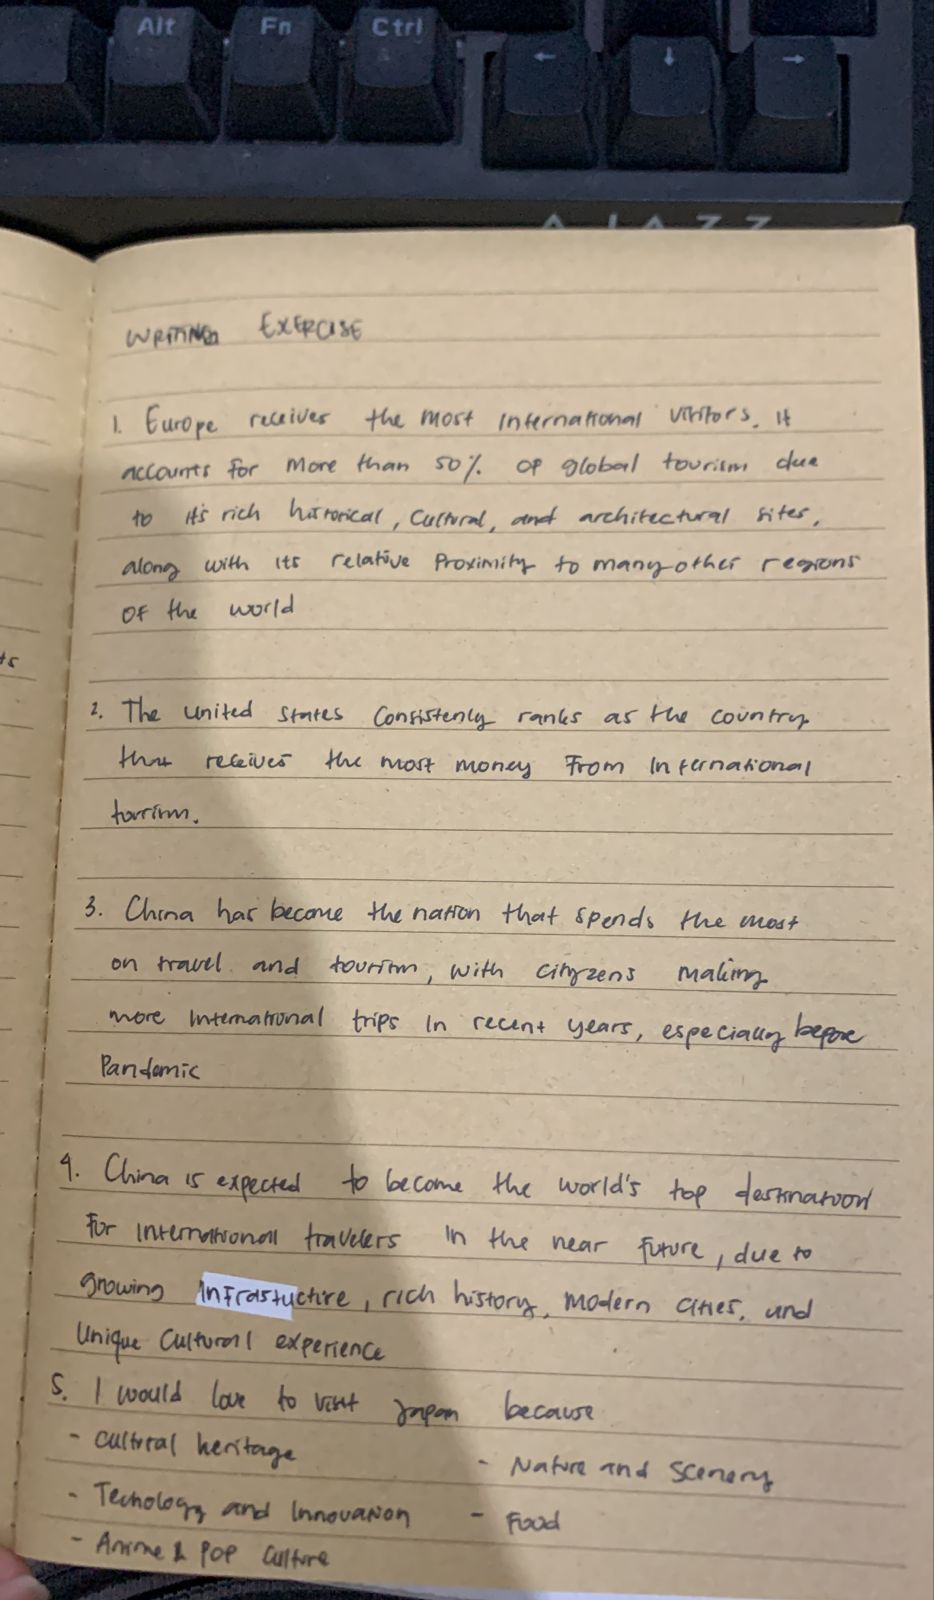 Alt Fn Ctrl
← ↓ →
AJAZZ
WRITING EXERCISE
1. Europe receives the most international visitors. It
accounts for more than 50% of global tourism due
to it's rich historical, cultural, and architectural sites,
along with its relative proximity to many other regions
of the world
ts
2. The United States consistenly ranks as the country
that receives the most money from international
tourism.
3. China has become the nation that spends the most
on travel and tourism, with cityzens making
more international trips in recent years, especially before
Pandemic
4. China is expected to become the world's top destination
for international travelers in the near future, due to
growing infrastucture, rich history, modern cities, and
Unique Cultural experience
5. I would love to visit Japan because
- cultural heritage
- Nature and Scenery
- Techology and Innovation
- Food
- Anime & Pop Culture